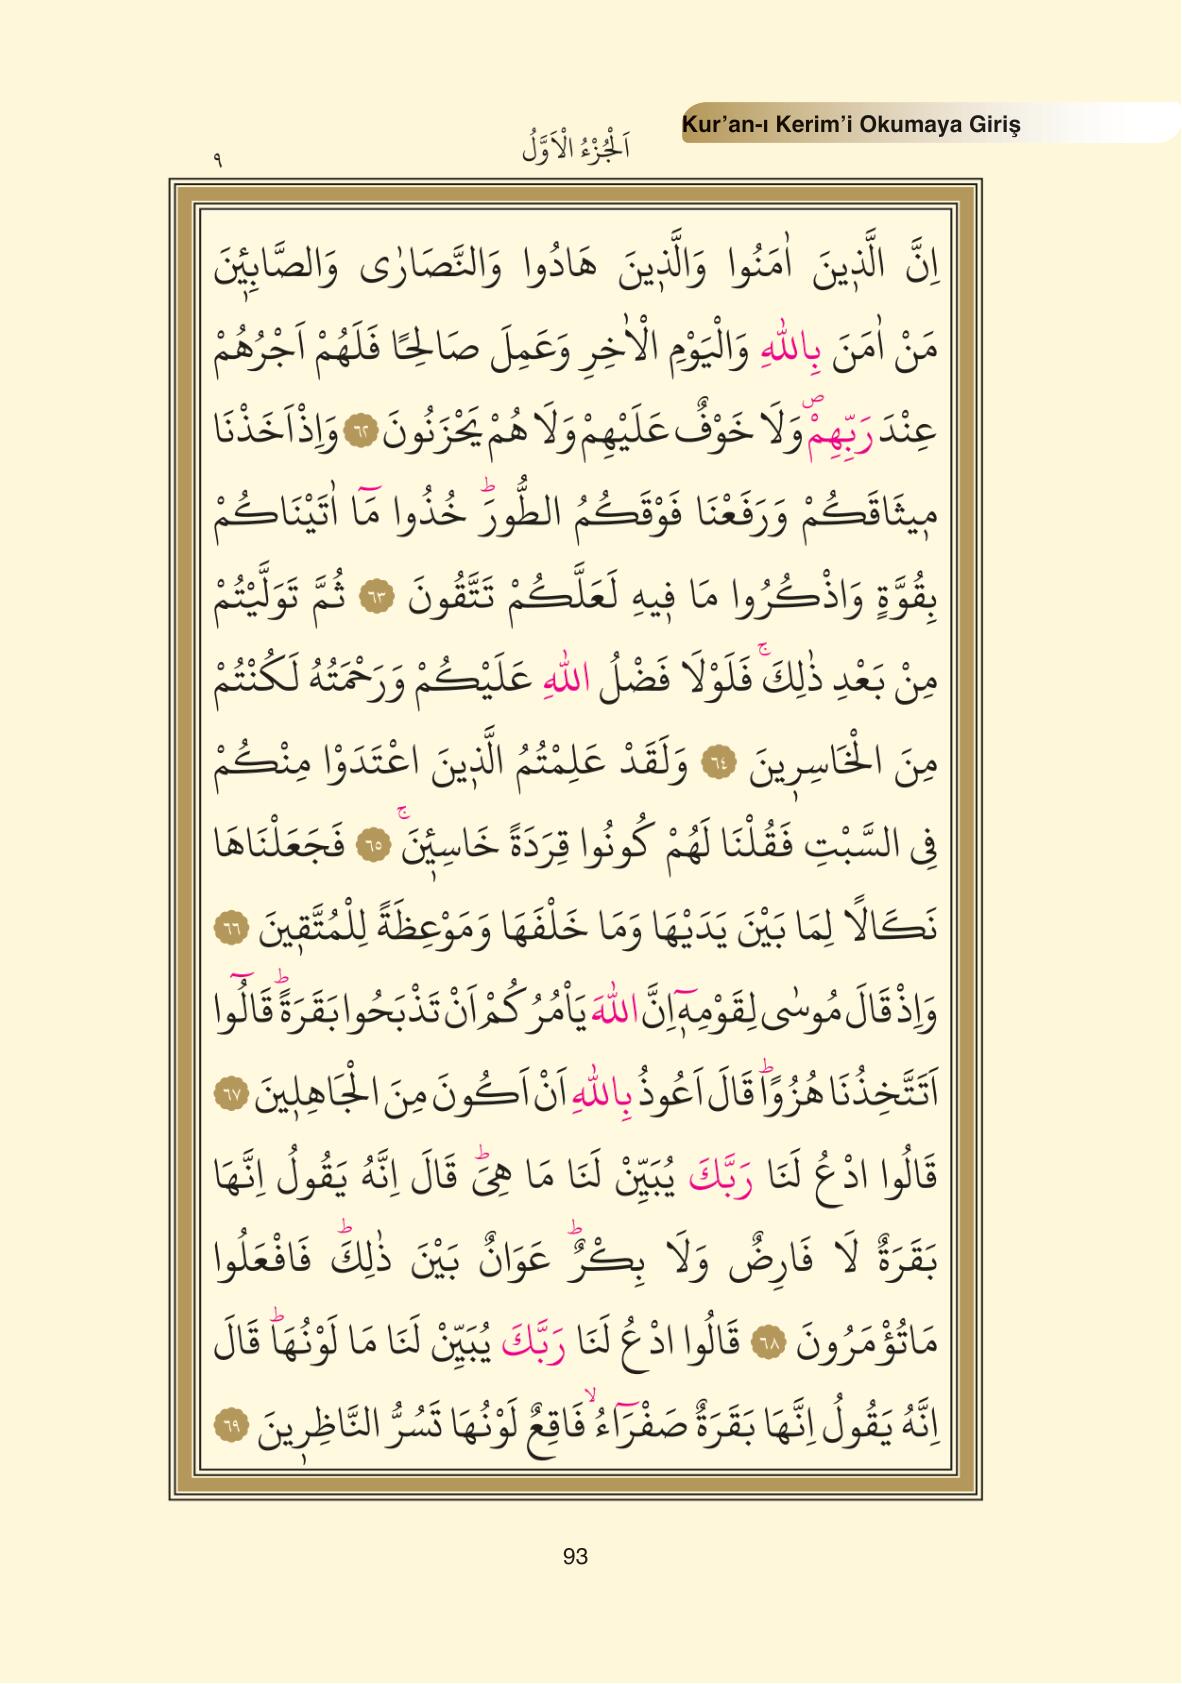 Kur’an-ı Kerim’i Okumaya Giriş
اَلْجُزْءُ الْاَوَّلُ
٩
اِنَّ الَّذ۪ينَ اٰمَنُوا وَالَّذ۪ينَ هَادُوا وَالنَّصَارٰى وَالصَّابِـ۪ٔينَ
مَنْ اٰمَنَ بِاللّٰهِ وَالْيَوْمِ الْاٰخِرِ وَعَمِلَ صَالِحًا فَلَهُمْ اَجْرُهُمْ
عِنْدَ رَبِّهِمْۖ وَلَا خَوْفٌ عَلَيْهِمْ وَلَا هُمْ يَحْزَنُونَ ٦٢ وَاِذْ اَخَذْنَا
م۪يثَاقَكُمْ وَرَفَعْنَا فَوْقَكُمُ الطُّورَۜ خُذُوا مَٓا اٰتَيْنَاكُمْ
بِقُوَّةٍ وَاذْكُرُوا مَا ف۪يهِ لَعَلَّكُمْ تَتَّقُونَ ٦٣ ثُمَّ تَوَلَّيْتُمْ
مِنْ بَعْدِ ذٰلِكَۚ فَلَوْلَا فَضْلُ اللّٰهِ عَلَيْكُمْ وَرَحْمَتُهُ لَكُنْتُمْ
مِنَ الْخَاسِر۪ينَ ٦٤ وَلَقَدْ عَلِمْتُمُ الَّذ۪ينَ اعْتَدَوْا مِنْكُمْ
فِى السَّبْتِ فَقُلْنَا لَهُمْ كُونُوا قِرَدَةً خَاسِـ۪ٔينَۚ ٦٥ فَجَعَلْنَاهَا
نَكَالًا لِمَا بَيْنَ يَدَيْهَا وَمَا خَلْفَهَا وَمَوْعِظَةً لِلْمُتَّق۪ينَ ٦٦
وَاِذْ قَالَ مُوسٰى لِقَوْمِه۪ٓ اِنَّ اللّٰهَ يَأْمُرُكُمْ اَنْ تَذْبَحُوا بَقَرَةًۜ قَالُٓوا
اَتَتَّخِذُنَا هُزُوًاۜ قَالَ اَعُوذُ بِاللّٰهِ اَنْ اَكُونَ مِنَ الْجَاهِل۪ينَ ٦٧
قَالُوا ادْعُ لَنَا رَبَّكَ يُبَيِّنْ لَنَا مَا هِىَۜ قَالَ اِنَّهُ يَقُولُ اِنَّهَا
بَقَرَةٌ لَا فَارِضٌ وَلَا بِكْرٌۜ عَوَانٌ بَيْنَ ذٰلِكَۜ فَافْعَلُوا
مَاتُؤْمَرُونَ ٦٨ قَالُوا ادْعُ لَنَا رَبَّكَ يُبَيِّنْ لَنَا مَا لَوْنُهَاۜ قَالَ
اِنَّهُ يَقُولُ اِنَّهَا بَقَرَةٌ صَفْرَٓاءُۙ فَاقِعٌ لَوْنُهَا تَسُرُّ النَّاظِر۪ينَ ٦٩
93